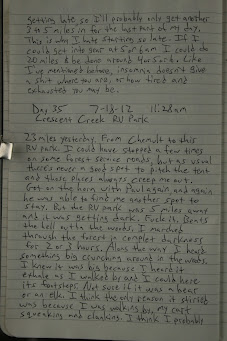 getting late, so I'll probably only get another
3 to 5 miles in for the last tent of my day.
This is why I hate starting so late. If I
could get into gear at 5 or 6am I could do
20 miles & be done around 4 or 5 o'clock. Like
I've mentioned before, insomnia doesn't give
a shit where you are, or how tired and
exhausted you may be.
Day 35 7-13-12 11:28am
Crescent Creek RV Park
23 miles yesterday. From Chemult to this
RV park. I could have stopped a few times
on some forest service roads, but as usual
there's never a good spot to pitch the tent
and those places always creep me out.
Got on the horn with Paul again, and again
he was able to find me another spot to
stay. But the RV park was 5 miles away
and it was getting dark. Fuck it. Beats
the hell outta the woods. I marched
through the forest in complet darkness
for 2 or 3 hours. Along the way I heard
something big crunching around in the woods.
I knew it was big because I heard it
exhale as I walked by and I could here
its footsteps. Not sure if it was a bear
or an elk. I think the only reason it stirred
was because I was walking by, my cart
squeaking and clanking. I think I probable